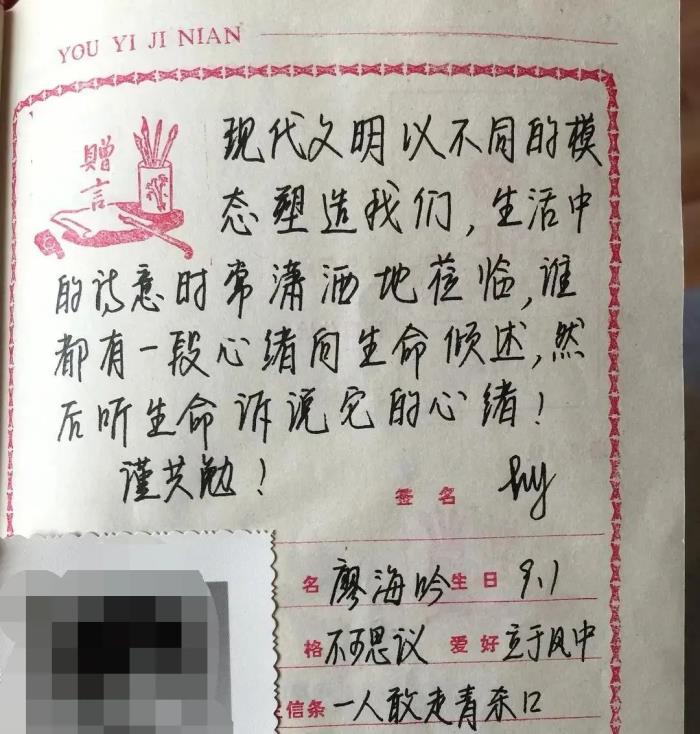 YOU YI JI NIAN
赠言
现代文明以不同的模
态塑造我们,生活中
的诗意时常潇洒地莅临,谁
都有一段心绪向生命倾述,然
后听生命诉说它的心绪!
谨共勉!
签名 hy
名 廖海吟 生日 9.1
格 不可思议 爱好 立于风中
信条 一人敢走青杀口